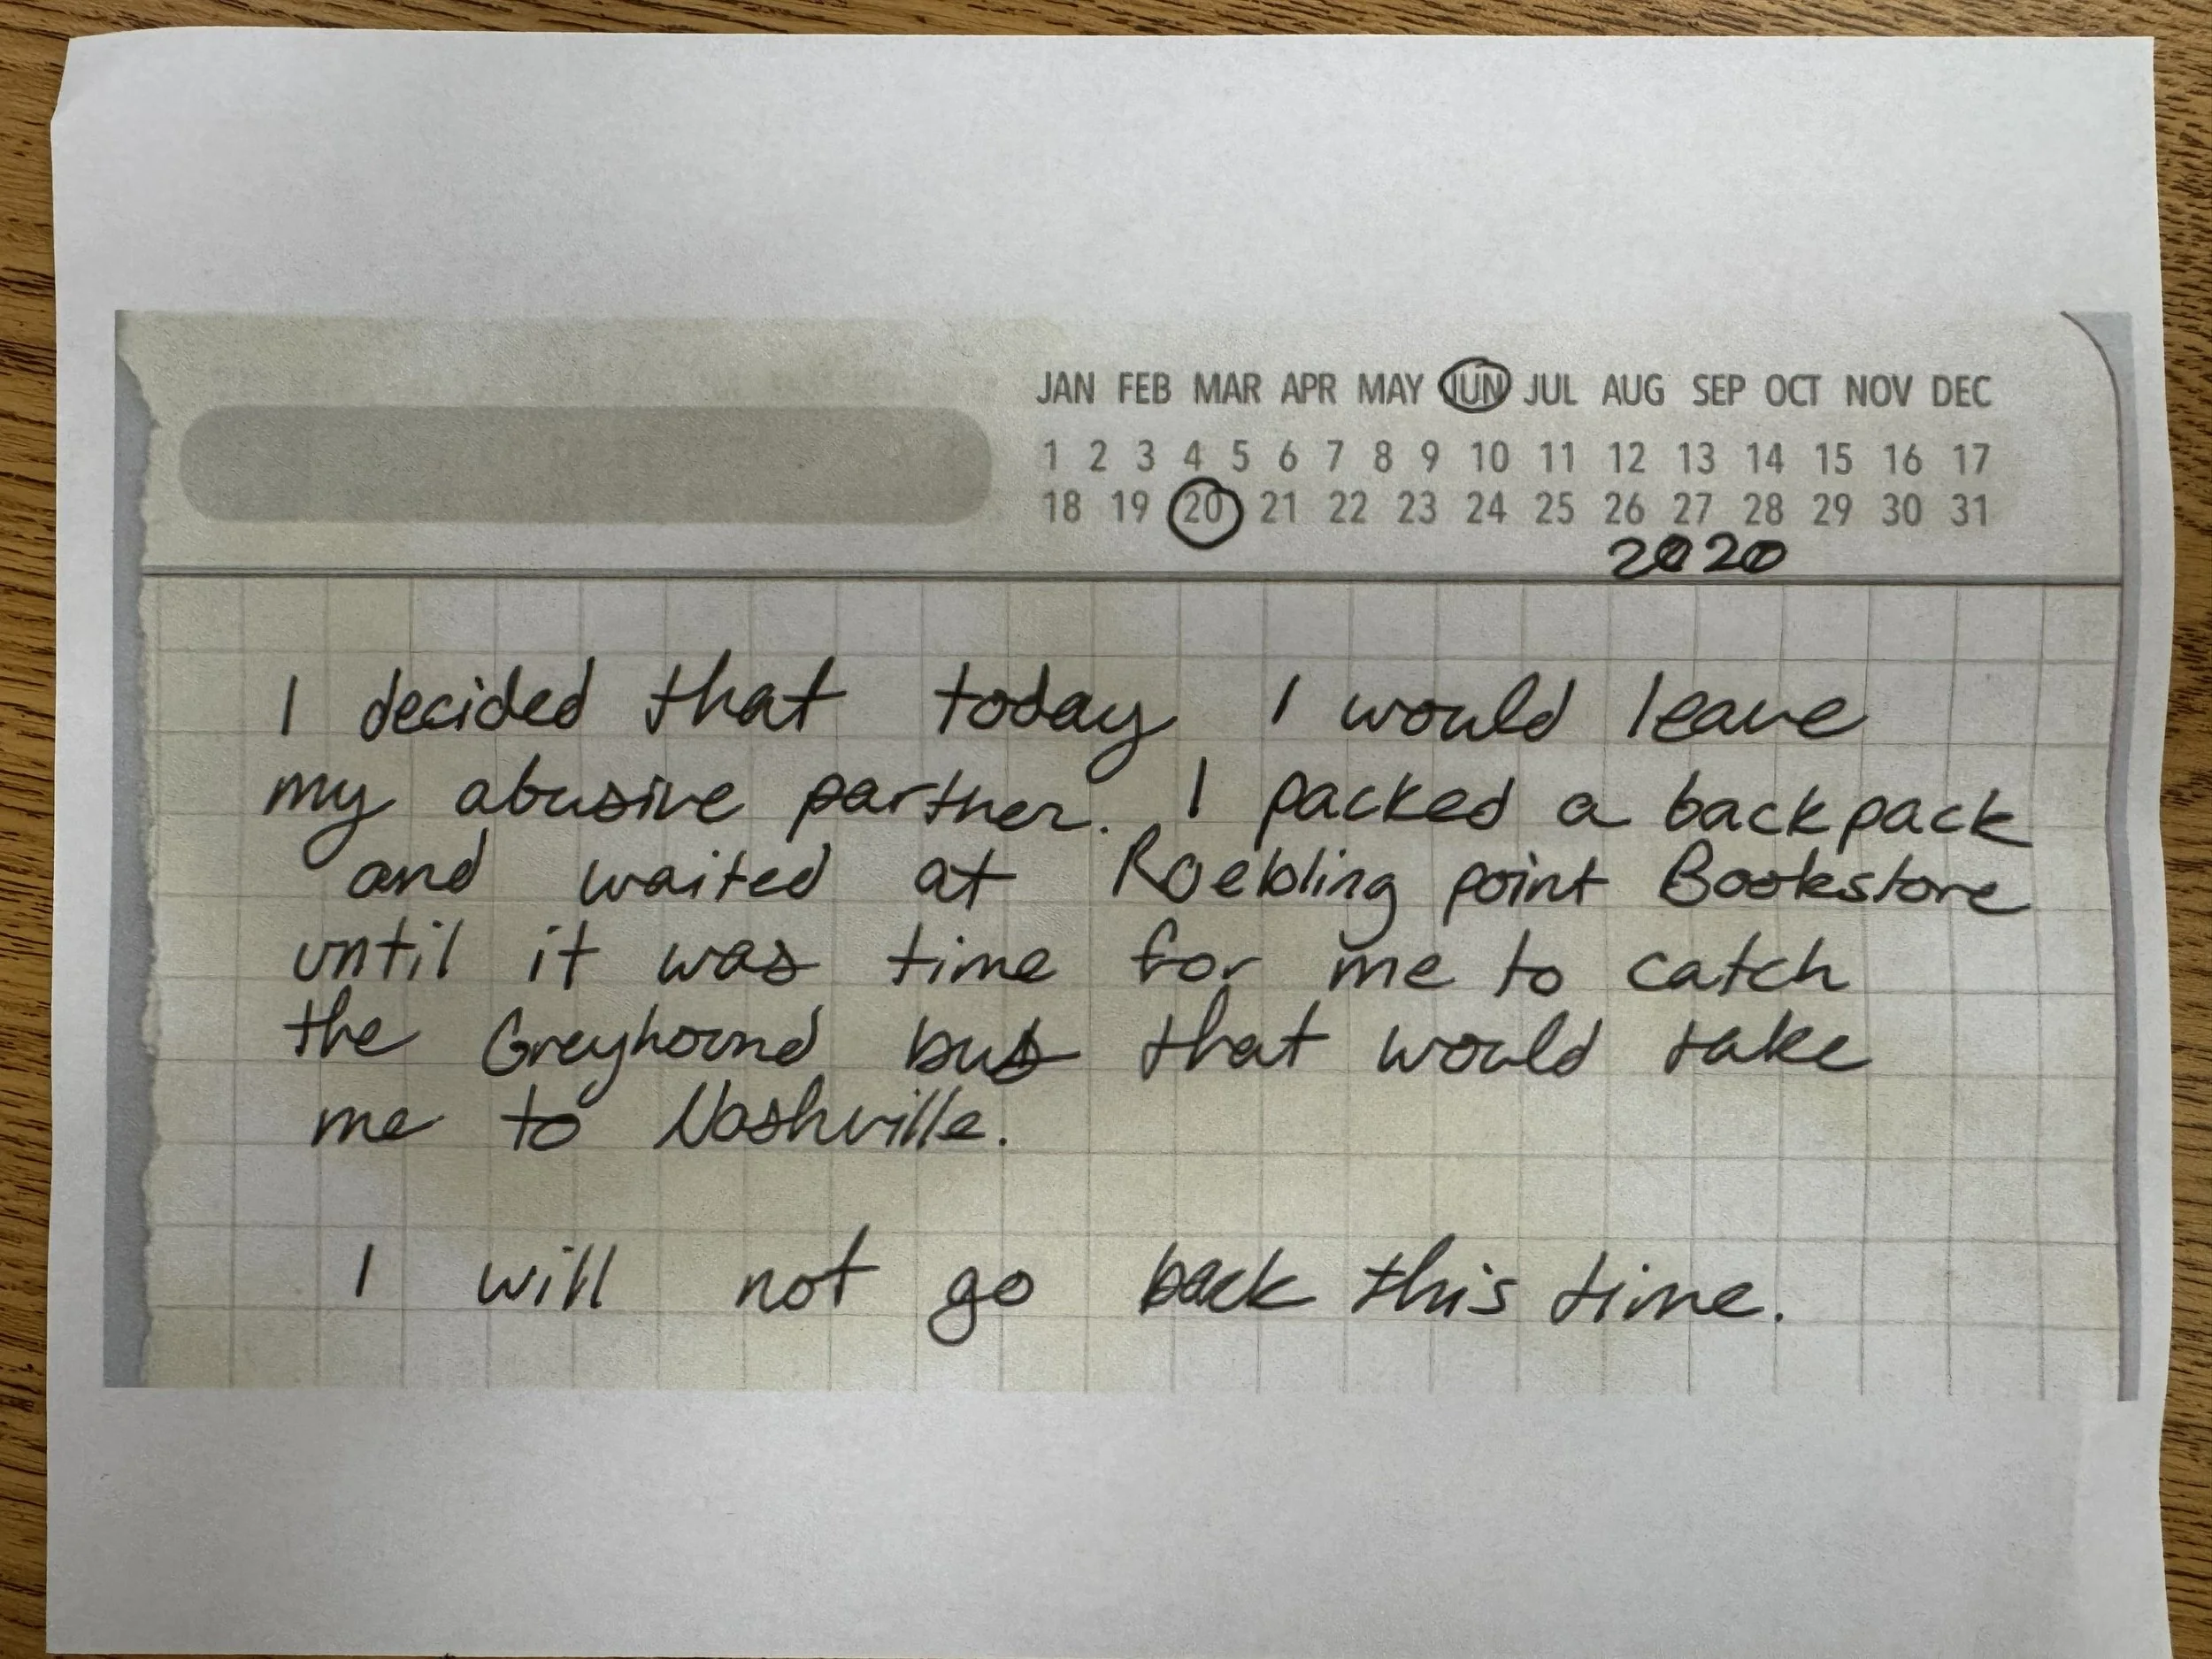 JAN FEB MAR APR MAY JUN JUL AUG SEP OCT NOV DEC
1 2 3 4 5 6 7 8 9 10 11 12 13 14 15 16 17
18 19 20 21 22 23 24 25 26 27 28 29 30 31
2020
I decided that today I would leave
my abusive partner. I packed a backpack
and waited at Roebling point Bookstore
until it was time for me to catch
the Greyhound bus that would take
me to Nashville.
I will not go back this time.